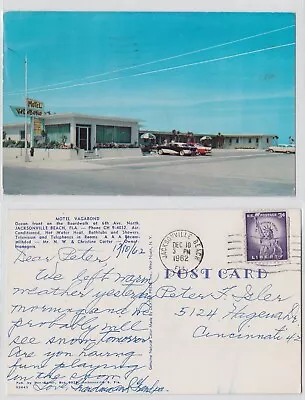 Motel
Vagabond
MOTEL VAGABOND
Ocean front on the Boardwalk at 6th Ave. North,
JACKSONVILLE BEACH, FLA. — Phone CH 9-4052. Air-
Conditioned, Hot Water Heat, Bathtubs and Showers,
Television and Telephones in Rooms. A A A Recom-
mended — Mr. N. W. & Christine Carter — Owner-
managers.
12/10/62
Dear Peter,
We left warm
weather yesterday
morning and we
probably will
see snow tomorrow
Are you having
fun playing
in the snow?
Love,
JACKSONVILLE BEACH
DEC 10
3 PM
1962
U.S. POSTAGE 3¢
LIBERTY
POST CARD
Peter F. Isler
5124
Cincinnati 42